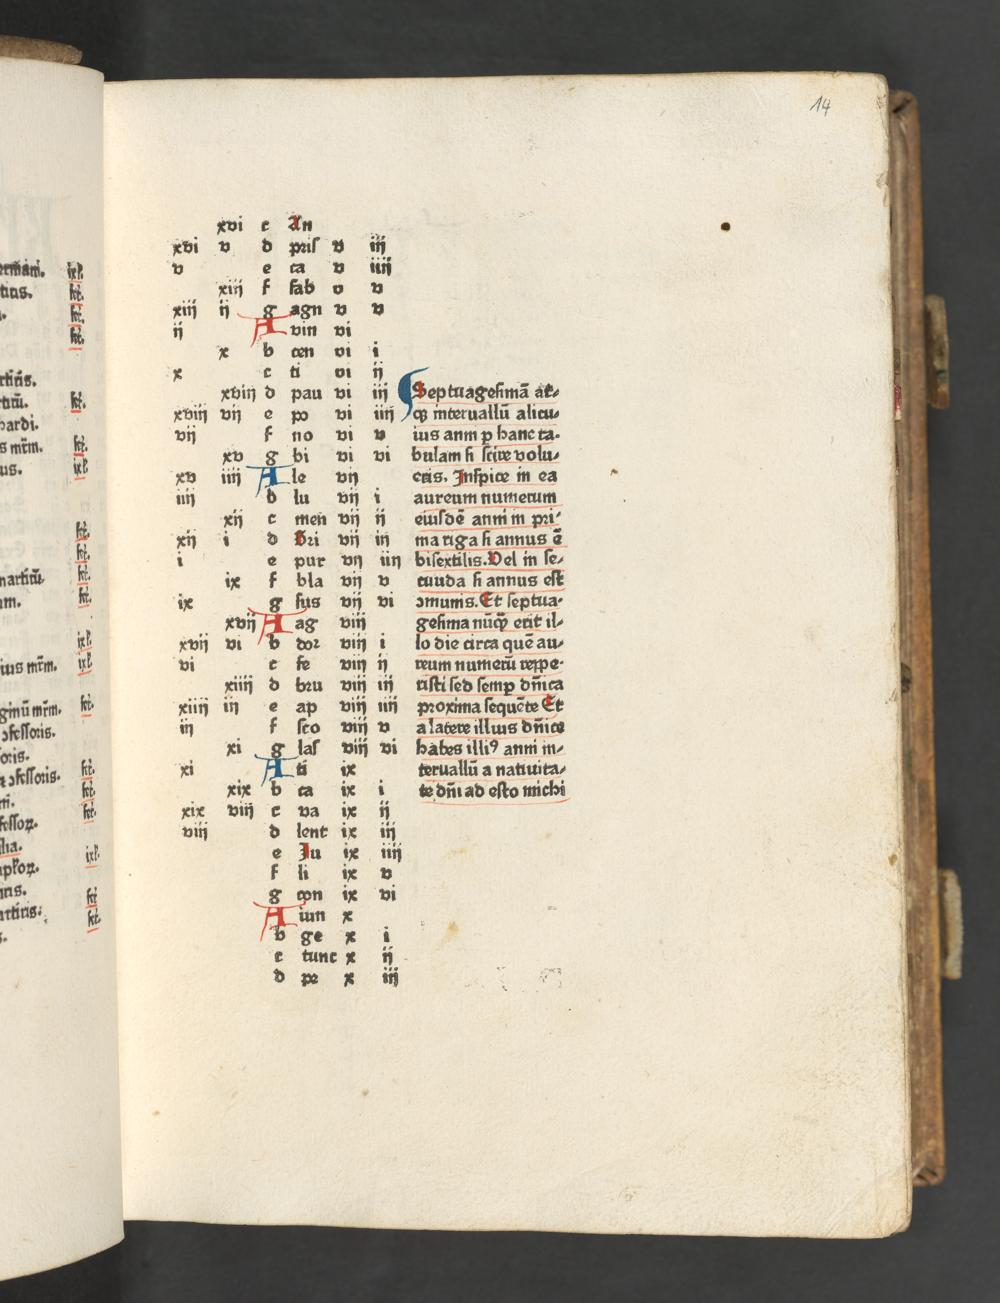 14
xvi c An
xvi v d pris v iij
v e ca v iiij
xiij f fab v v
xiij ij g agn v v
ij A vin vi
x b cen vi i
x c ti vi ij
xviij d pau vi iij
xviij vij e po vi iiij
vij f no vi v
xv g bi vi vi
xv iiij A le vij
iiij b lu vij i
xij c men vij ij
xij i d Bri vij iij
i e pur vij iiij
ix f bla vij v
ix g sus vij vi
xvij A ag viij
xvij vi b dor viij i
vi c fe viij ij
xiiij d bru viij iij
xiiij iij e ap viij iiij
iij f sco viij v
xi g las viij vi
xi A ti ix
xix b ca ix i
xix viij c va ix ij
viij d lent ix iij
e Iu ix iiij
f li ix v
g con ix vi
A iun x
b ge x i
c tunc x ij
d pe x iij
Septuagesimā at-
q̄ interuallū alicu-
ius anni p hanc ta-
bulam si scire volu-
eris. Inspice in ea
aureum numerum
eiusdē anni in pri-
ma riga si annus ē
bisextilis. Vel in se-
cuuda si annus est
ɔmunis. Et septua-
gesima nūq̄ erit il-
lo die circa quē au-
reum numerū reppe-
risti sed semp dñica
proxima sequēte Et
a latere illius dñice
habes illiꝰ anni in-
teruallū a natiuita-
te dñi ad esto michi